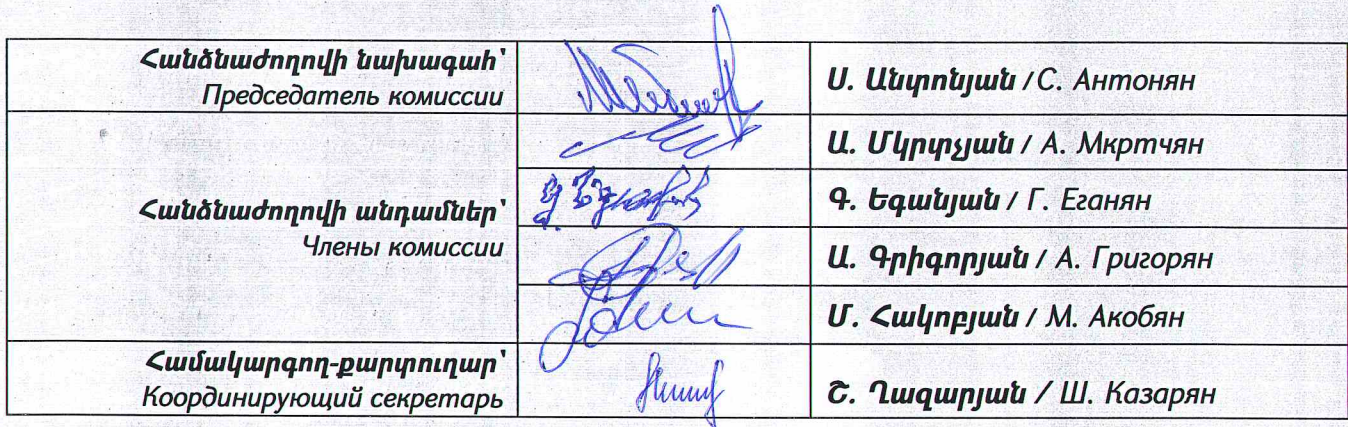 Հանձնաժողովի նախագահ՝
Председатель комиссии
Ս. Անտոնյան / С. Антонян
Ա. Մկրտչյան / А. Мкртчян
Հանձնաժողովի անդամներ՝
Члены комиссии
Գ. Եգանյան / Г. Еганян
Ա. Գրիգորյան / А. Григорян
Մ. Հակոբյան / М. Акобян
Համակարգող-քարտուղար՝
Координирующий секретарь
Շ. Ղազարյան / Ш. Казарян